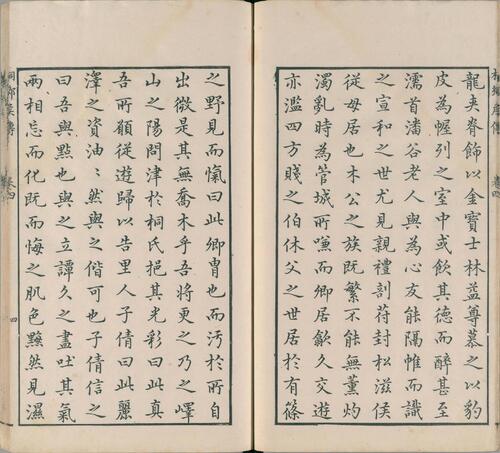 龍夾脊飾以金寶士林益尊慕之以豹
皮為幄列之室中或飲其德而醉甚至
濡首潘谷老人與為心友能隔帷而識
之宣和之世尤見親禮剖符封松滋侯
從毋居也木公之族既繁不能無薰灼
濁亂時為管城所嗛而卿居歙久交遊
亦濫四方賤之伯休父之世居於有篠
之野見而愾曰此卿胄也而汚於所自
出微是其無喬木乎吾將更之乃之嶧
山之陽問津於桐氏挹其光彩曰此真
吾所願從遊歸以告里人子倩曰此麗
澤之資油〻然與之偕可也子倩信之
曰吾與點也與之立譚久之盡吐其氣
兩相忘而化既而悔之肌色黯然見濕
卷四
四